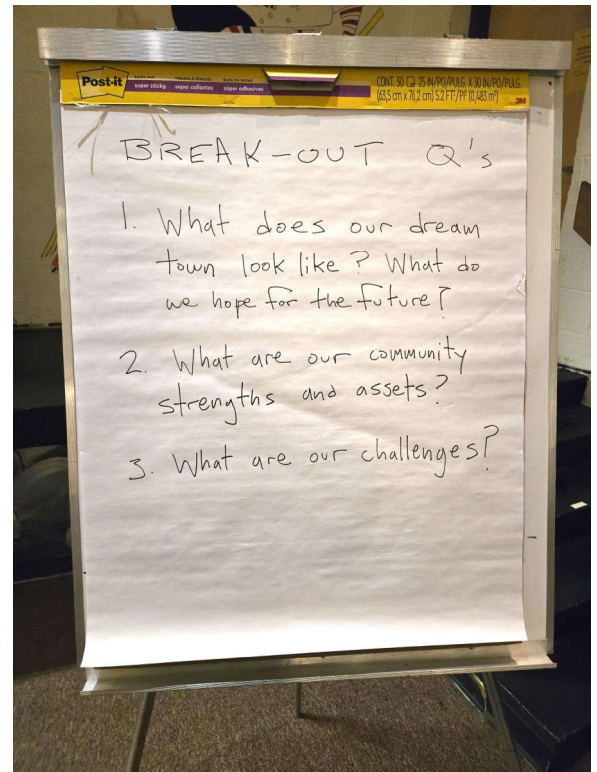 Post-it
super sticky super collantes súper adhesivas
CONT. 30 25 IN/PO/PULG. X 30 IN/PO/PULG.
(63,5 cm x 76,2 cm) 5.2 FT²/PI² (0,483 m²)
3M
BREAK-OUT Q's
1. What does our dream
town look like? What do
we hope for the future?
2. What are our community
strengths and assets?
3. What are our challenges?